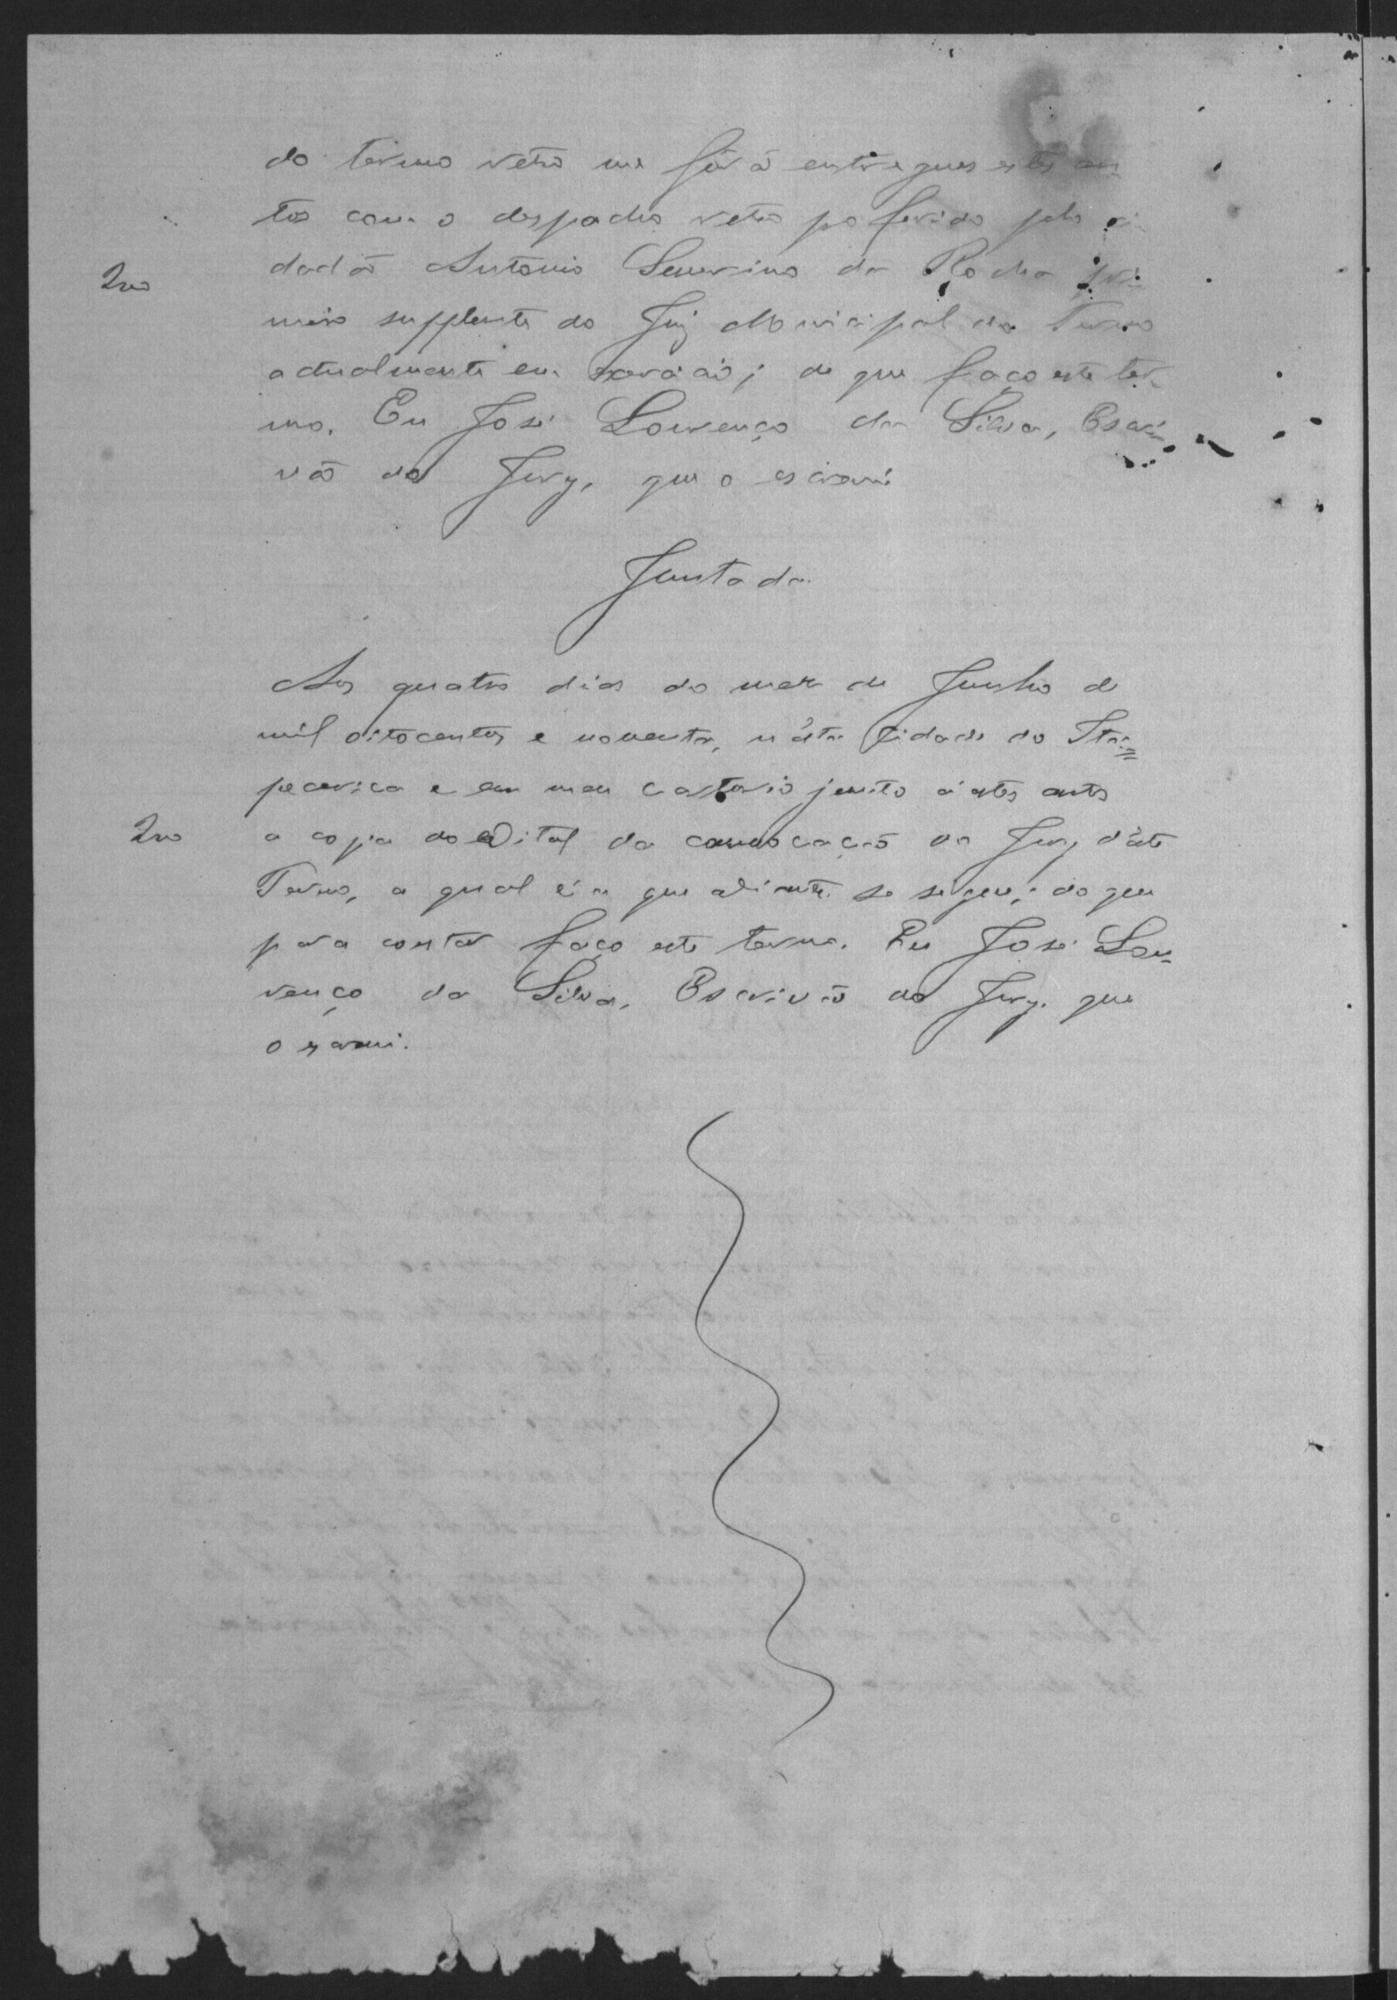 do termo retro me fôrã entregues estes au-
tos com o despacho retro proferido pelo ci-
dadã Antonio Severino da Rocha pri-
200
meiro supplente do Juiz Municipal do Termo
actualmente em ; de que faço este ter-
mo. Eu José Lourenço da Silva, Escri-
vã do Jury, que o escrevi
Juntada
Aos quatro dias do mez de Junho de
mil oitocentos e noventa, n'ésta Cidade do Ita-
pecerica e em meu Cartorio junto a éstes autos
200
a copia do edital da convocação do Jury d'éste
Termo, a qual é a que adiante se segue; do que
para constar faço este termo. Eu José Lou-
renço da Silva, Escrivão do Jury, que
o escrevi.